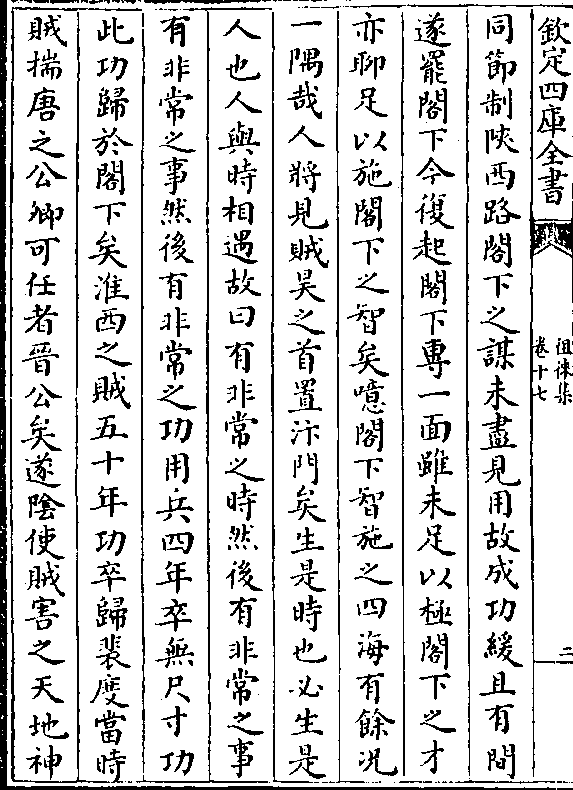 欽定四庫全書
徂徠集
卷十七
二
同節制陝西路閣下之謀未盡見用故成功緩且有間
遂罷閣下今復起閣下專一面雖未足以極閣下之才
亦聊足以施閣下之智矣噫閣下智施之四海有餘况
一隅哉人將見賊昊之首置汴門矣生是時也必生是
人也人與時相遇故曰有非常之時然後有非常之事
有非常之事然後有非常之功用兵四年卒無尺寸功
此功歸於閣下矣淮西之賊五十年功卒歸裴度當時
賊揣唐之公卿可任者晉公矣遂隂使賊害之天地神